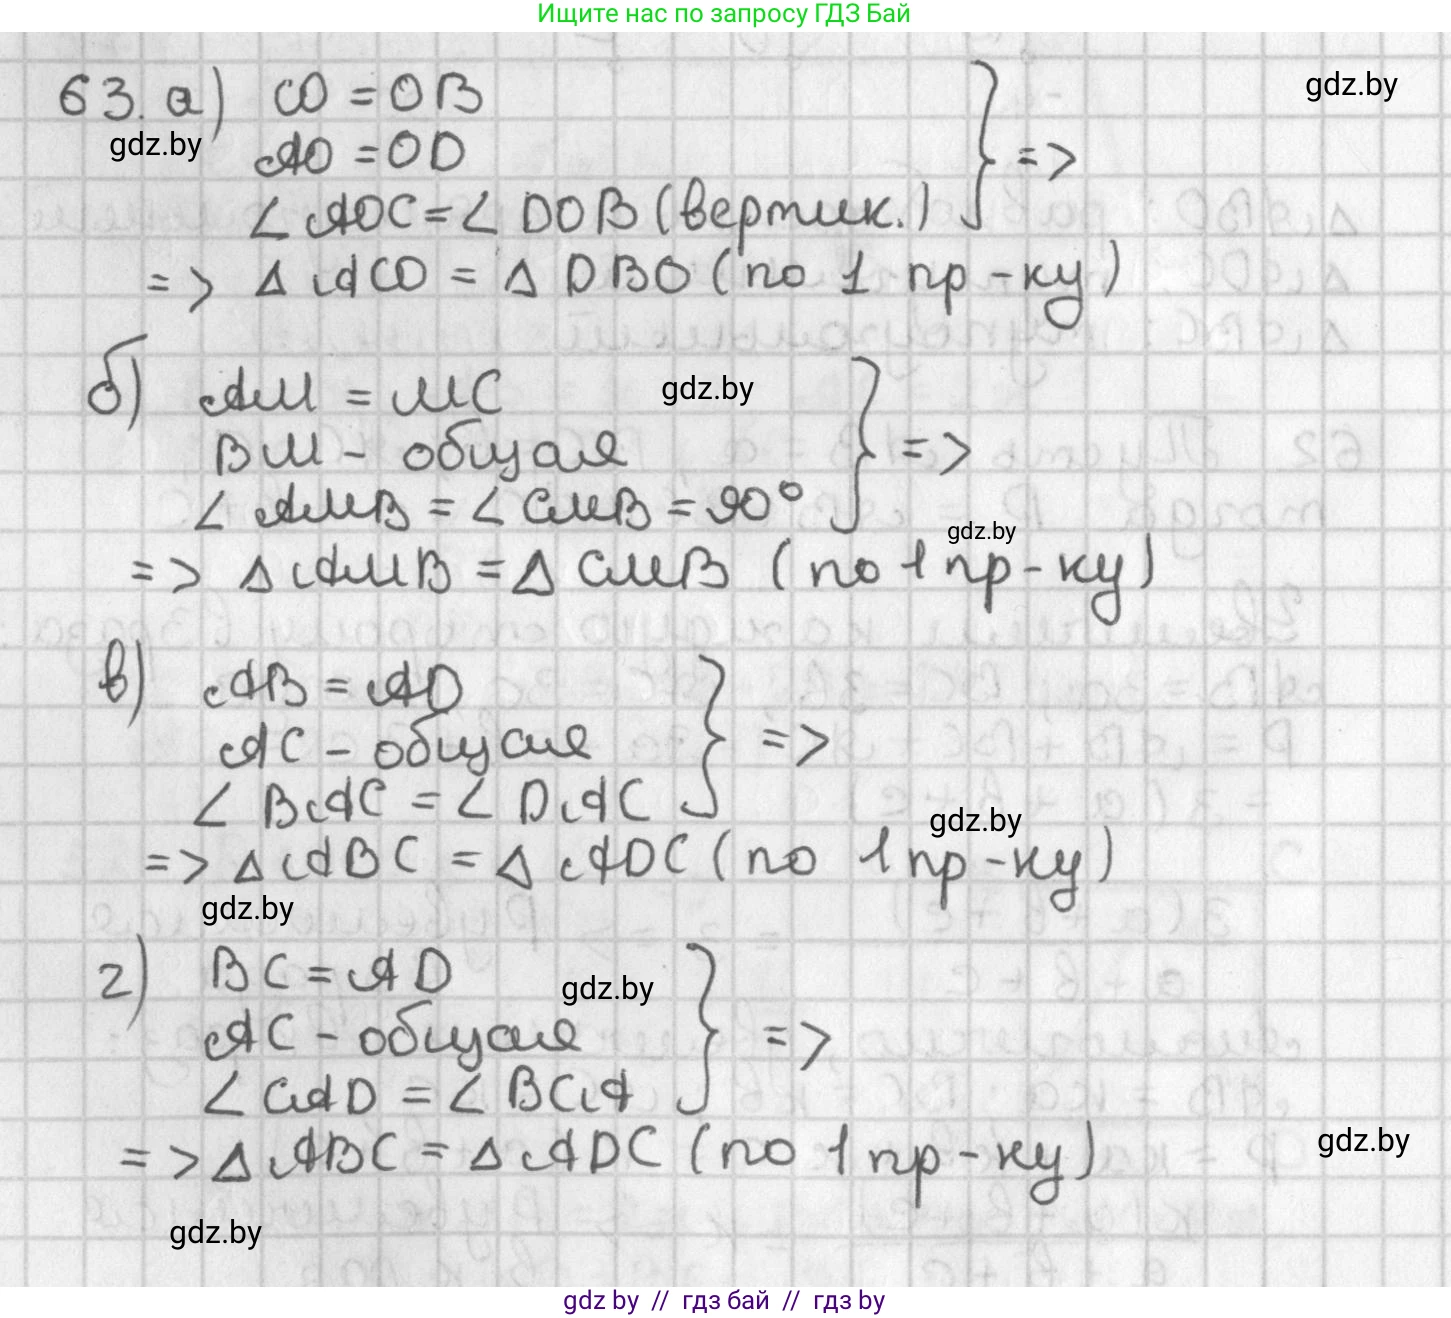 Ищите нас по запросу ГДЗ Бай
63. а) CO = OB
gdz.by
gdz.by
AO = OD
=>
∠ AOC = ∠ DOB (вертик.)
=> Δ ACO = Δ DBO (по 1 пр-ку)
б) AM = MC
gdz.by
BM - общая
=>
∠ AMB = ∠ CMB = 90°
gdz.by
=> Δ AMB = Δ CMB (по 1 пр-ку)
в) AB = AD
AC - общая
=>
∠ BAC = ∠ DAC
gdz.by
=> Δ ABC = Δ ADC (по 1 пр-ку)
gdz.by
г) BC = AD
gdz.by
AC - общая
=>
∠ CAD = ∠ BCA
gdz.by
=> Δ ABC = Δ ADC (по 1 пр-ку)
gdz.by
gdz by // гдз бай // гдз by